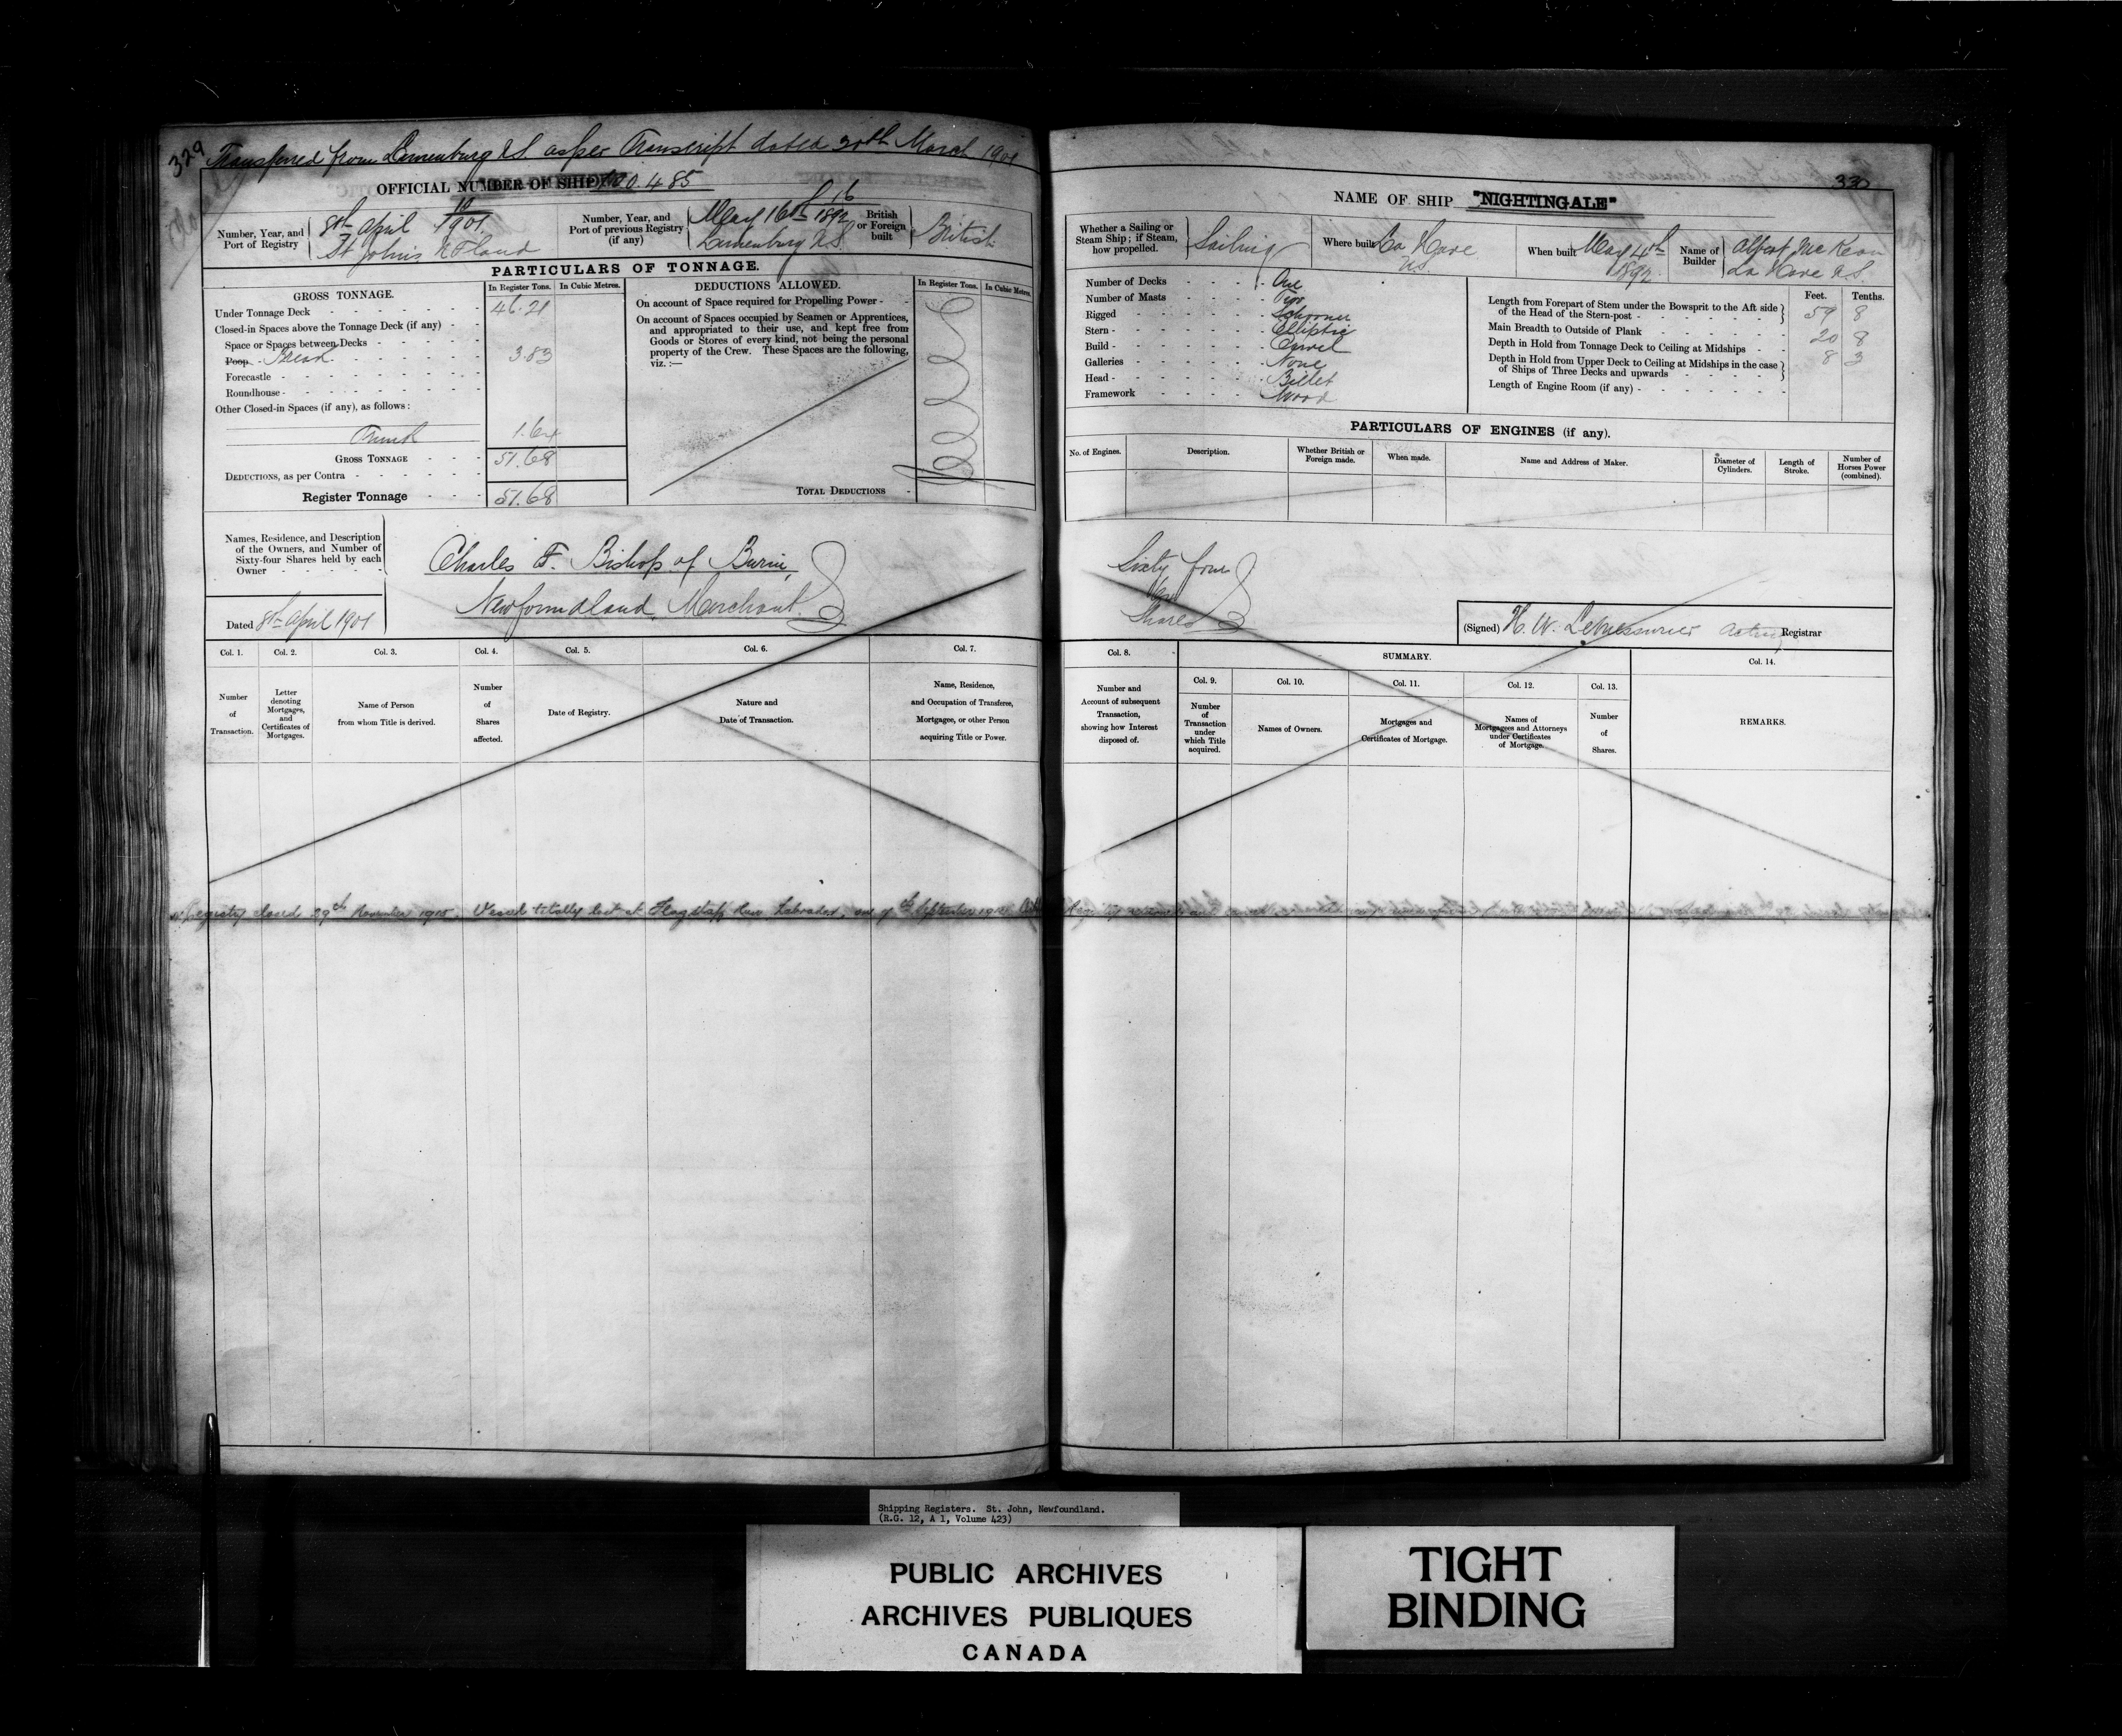 329 Transferred from Lunenburg N.S. as per Transcript dated 30th March 1901
OFFICIAL NUMBER OF SHIP 100.485
Number, Year, and Port of Registry
10
8th April 1901.
St John's N.F.land
Number, Year, and Port of previous Registry (if any)
16
May 16th 1892
Lunenburg N.S.
British or Foreign built
British
PARTICULARS OF TONNAGE.
GROSS TONNAGE.
In Register Tons.
In Cubic Metres.
Under Tonnage Deck 46.21
Closed-in Spaces above the Tonnage Deck (if any)
Space or Spaces between Decks
Poop Break 3.83
Forecastle
Roundhouse
Other Closed-in Spaces (if any), as follows:
Trunk 1.64
GROSS TONNAGE 51.68
DEDUCTIONS, as per Contra
Register Tonnage 51.68
DEDUCTIONS ALLOWED.
In Register Tons.
In Cubic Metres.
On account of Space required for Propelling Power
On account of Spaces occupied by Seamen or Apprentices,
and appropriated to their use, and kept free from
Goods or Stores of every kind, not being the personal
property of the Crew. These Spaces are the following,
viz.:—
TOTAL DEDUCTIONS
Names, Residence, and Description
of the Owners, and Number of
Sixty-four Shares held by each
Owner
Charles F. Bishop of Burin,
Newfoundland, Merchant.
Dated 8th April 1901
Col. 1.
Number of Transaction.
Col. 2.
Letter denoting Mortgages, and Certificates of Mortgages.
Col. 3.
Name of Person from whom Title is derived.
Col. 4.
Number of Shares affected.
Col. 5.
Date of Registry.
Col. 6.
Nature and Date of Transaction.
Col. 7.
Name, Residence, and Occupation of Transferee, Mortgagee, or other Person acquiring Title or Power.
Registry closed 29th November 1915. Vessel totally lost at Flagstaff Labrador, on 7th September 1915
330
NAME OF SHIP "NIGHTINGALE"
Whether a Sailing or Steam Ship; if Steam, how propelled.
Sailing
Where built
La Have
N.S.
When built
May 4th
1892.
Name of Builder
Albert McKean
La Have N.S.
Number of Decks One
Number of Masts Two
Rigged Schooner
Stern Elliptic
Build Carvel
Galleries None
Head Billet
Framework Wood
Feet. Tenths.
Length from Forepart of Stem under the Bowsprit to the Aft side
of the Head of the Stern-post 59 8
Main Breadth to Outside of Plank 20 8
Depth in Hold from Tonnage Deck to Ceiling at Midships 8 3
Depth in Hold from Upper Deck to Ceiling at Midships in the case
of Ships of Three Decks and upwards
Length of Engine Room (if any)
PARTICULARS OF ENGINES (if any).
No. of Engines.
Description.
Whether British or Foreign made.
When made.
Name and Address of Maker.
Diameter of Cylinders.
Length of Stroke.
Number of Horses Power (combined).
Sixty four
Shares
(Signed) H. W. LeMessurier Acting Registrar
Col. 8.
Number and Account of subsequent Transaction, showing how Interest disposed of.
SUMMARY.
Col. 9.
Number of Transaction under which Title acquired.
Col. 10.
Names of Owners.
Col. 11.
Mortgages and Certificates of Mortgage.
Col. 12.
Names of Mortgagees and Attorneys under Certificates of Mortgage.
Col. 13.
Number of Shares.
Col. 14.
REMARKS.
Shipping Registers. St. John, Newfoundland.
(R.G. 12, A 1, Volume 423)
PUBLIC ARCHIVES
ARCHIVES PUBLIQUES
CANADA
TIGHT
BINDING